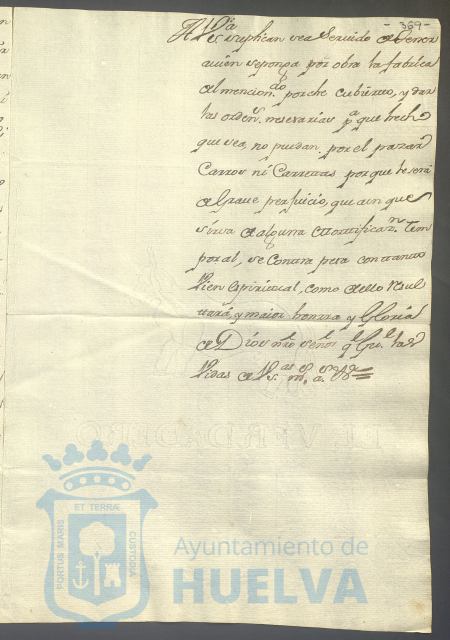 - 369 -
A V.Sia suplican sea Servido de Tener
a vien se ponga por obra la fabrica
del menciondo porche cubierto, y dar
las ordens nesesarias pa que hecho
que sea, no puedan por el pasar
Carros ni Carretas porque le sera
de Grave perjuicio, que aun que
sirva de alguna Mortificazn Tem
poral, se Contra pesa con tanto
Vien espiritual, como de ello Resul
tará, y maior honrra y Gloria
de Dios nro señor qe Gue las
Vidas de V.Sas ms as
EL VERDADERO
PORTUS MARIS
ET TERRÆ
CUSTODIA
Ayuntamiento de
HUELVA